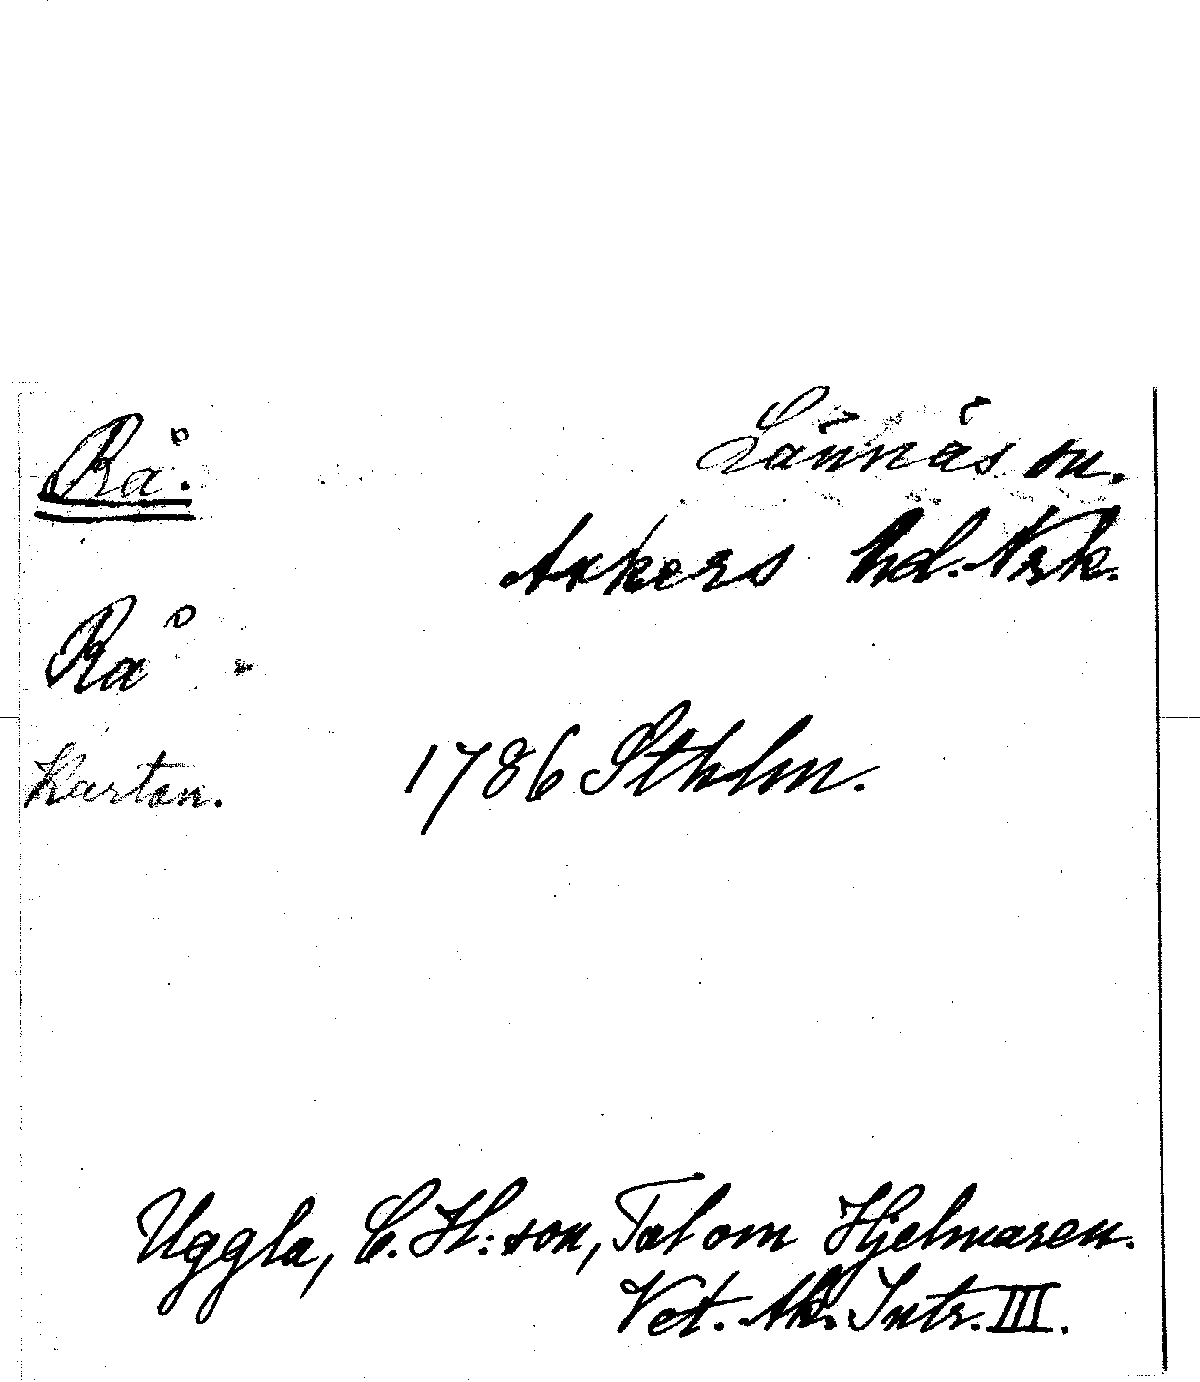 Rå.
Lännäs sn.
Askers hd. Nrk.
Rå
Kartan.
1786 Sthlm.
Uggla, C. H:son, Tal om Hjelmaren.
Vet. Ak. Intr. III.